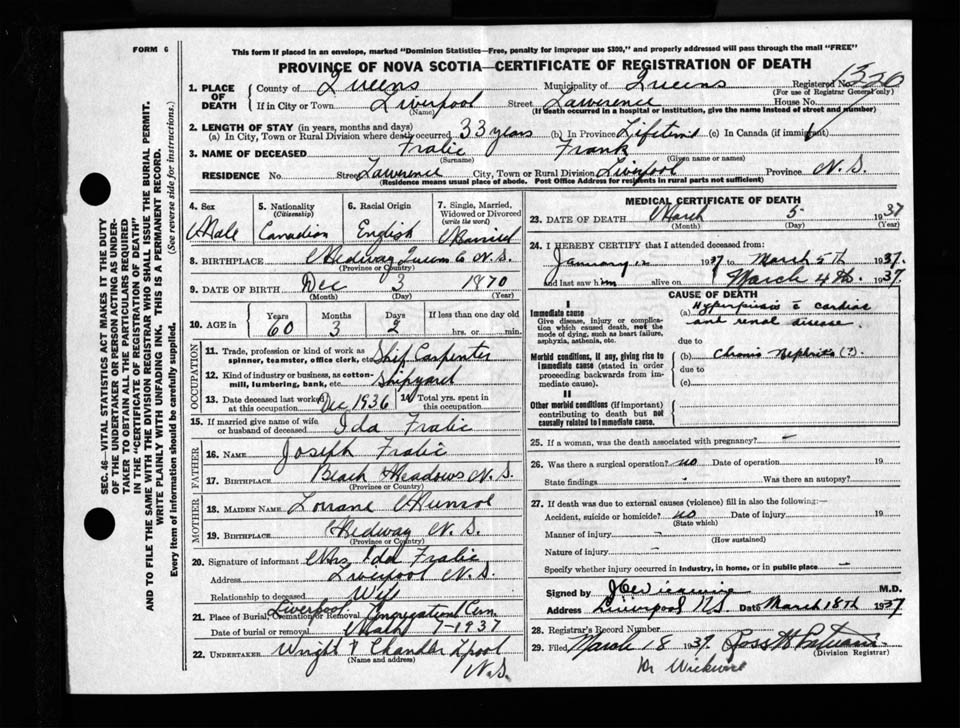 FORM 6
This form if placed in an envelope, marked "Dominion Statistics—Free, penalty for improper use $300," and properly addressed will pass through the mail "FREE"
PROVINCE OF NOVA SCOTIA—CERTIFICATE OF REGISTRATION OF DEATH
1. PLACE OF DEATH
County of Queens Municipality of Queens Registered No. 1320
(For use of Registrar General only)
If in City or Town Liverpool Street Lawerence House No.
(Name) (If death occurred in a hospital or institution, give the name instead of street and number)
2. LENGTH OF STAY (in years, months and days)
(a) In City, Town or Rural Division where death occurred 33 years (b) In Province Lifetime (c) In Canada (if immigrant)
3. NAME OF DECEASED Fralic Frank
(Surname) (Given name or names)
RESIDENCE No. Street Lawerence City, Town or Rural Division Liverpool Province N.S.
(Residence means usual place of abode. Post Office Address for residents in rural parts not sufficient)
4. Sex Male
5. Nationality (Citizenship) Canadian
6. Racial Origin English
7. Single, Married, Widowed or Divorced (write the word) Married
8. BIRTHPLACE Medway Queens Co N.S.
(Province or Country)
9. DATE OF BIRTH Dec 3 1870
(Month) (Day) (Year)
10. AGE in Years 60 Months 3 Days 2 If less than one day old hrs. or min.
OCCUPATION
11. Trade, profession or kind of work as spinner, teamster, office clerk, etc. Ship Carpenter
12. Kind of industry or business, as cotton-mill, lumbering, bank, etc. Shipyard
13. Date deceased last worked at this occupation Dec 1936
14. Total yrs. spent in this occupation
15. If married give name of wife or husband of deceased Ida Fralic
FATHER
16. NAME Joseph Fralic
17. BIRTHPLACE Beach Meadows N.S.
(Province or Country)
MOTHER
18. MAIDEN NAME Lorrane
19. BIRTHPLACE Medway N.S.
(Province or Country)
20. Signature of informant Mrs Ida Fralic
Address Liverpool N.S.
Relationship to deceased Wife
21. Place of Burial, Cremation or Removal Liverpool Congregational Cem.
Date of burial or removal March 7-1937
22. UNDERTAKER Wright & Chandler Lpool N.S.
(Name and address)
MEDICAL CERTIFICATE OF DEATH
23. DATE OF DEATH March 5 1937
(Month) (Day) (Year)
24. I HEREBY CERTIFY that I attended deceased from:
January 1937 to March 5th 1937.
and last saw him alive on March 4th 1937.
CAUSE OF DEATH
I
Immediate cause
Give disease, injury or complication which caused death, not the mode of dying, such as heart failure, asphyxia, asthenia, etc.
(a) cardiac
and renal disease
due to
Morbid conditions, if any, giving rise to immediate cause (stated in order proceeding backwards from immediate cause).
(b) Chronic Nephritis (?)
due to
(c)
II
Other morbid conditions (if important) contributing to death but not causally related to immediate cause.
25. If a woman, was the death associated with pregnancy? -
26. Was there a surgical operation? no Date of operation 19
State findings Was there an autopsy?
27. If death was due to external causes (violence) fill in also the following:—
Accident, suicide or homicide? no Date of injury 19
(State which)
Manner of injury -
(How sustained)
Nature of injury -
Specify whether injury occurred in industry, in home, or in public place -
Signed by M.D.
Address Liverpool N.S. Date March 18th 1937
28. Registrar's Record Number
29. Filed March 18 1937
(Division Registrar)
Dr Wickwire
SEC. 46—VITAL STATISTICS ACT MAKES IT THE DUTY OF THE UNDERTAKER OR PERSON ACTING AS UNDERTAKER TO OBTAIN ALL THE PARTICULARS REQUIRED IN THE "CERTIFICATE OF REGISTRATION OF DEATH" AND TO FILE THE SAME WITH THE DIVISION REGISTRAR WHO SHALL ISSUE THE BURIAL PERMIT.
WRITE PLAINLY WITH UNFADING INK. THIS IS A PERMANENT RECORD.
Every item of information should be carefully supplied. (See reverse side for instructions.)